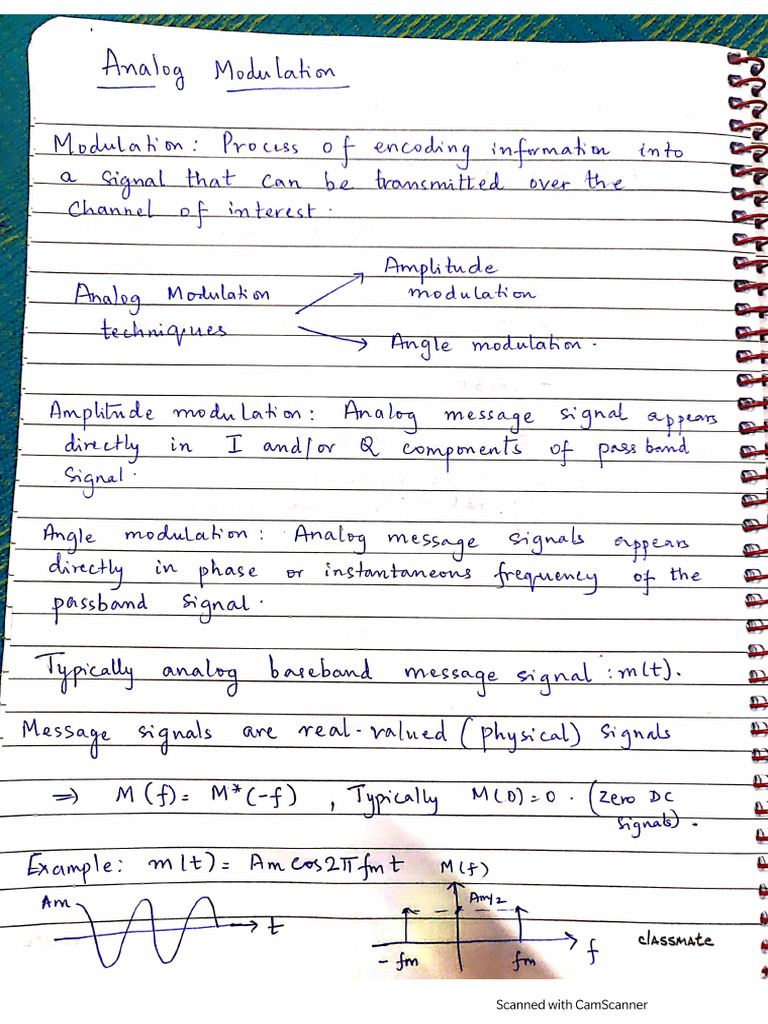 Analog Modulation
Modulation: Process of encoding information into
a signal that can be transmitted over the
Channel of interest.
Analog Modulation
techniques
Amplitude
modulation
Angle modulation.
Amplitude modulation: Analog message signal appears
directly in I and/or Q components of passband
signal.
Angle modulation: Analog message signals appears
directly in phase or instantaneous frequency of the
passband signal.
Typically analog baseband message signal : m(t).
Message signals are real-valued (physical) signals
⇒ M(f) = M*(-f) , Typically M(0) = 0. (Zero DC
signals).
Example: m(t) = Am cos2πfmt
M(f)
Am
t
Am/2
-fm
fm
f
classmate
Scanned with CamScanner